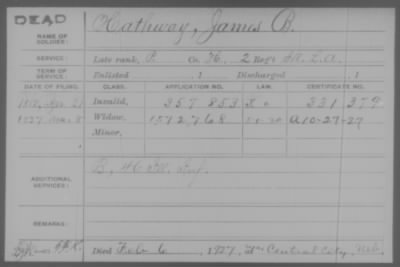 DEAD
NAME OF SOLDIER: Hathway, James B.
SERVICE: Late rank, P. Co. H, 2 Reg't Ill. L.A.
TERM OF SERVICE: Enlisted , 1 Discharged , 1
DATE OF FILING. CLASS. APPLICATION NO. LAW. CERTIFICATE NO.
Invalid, 357 853 331 379
1927 Widow, 1572,768 A10-27-27
Minor,
ADDITIONAL SERVICES: B, 46 Ill. Inf.
REMARKS:
Died Feb 6, 1927, at Central City, Neb.